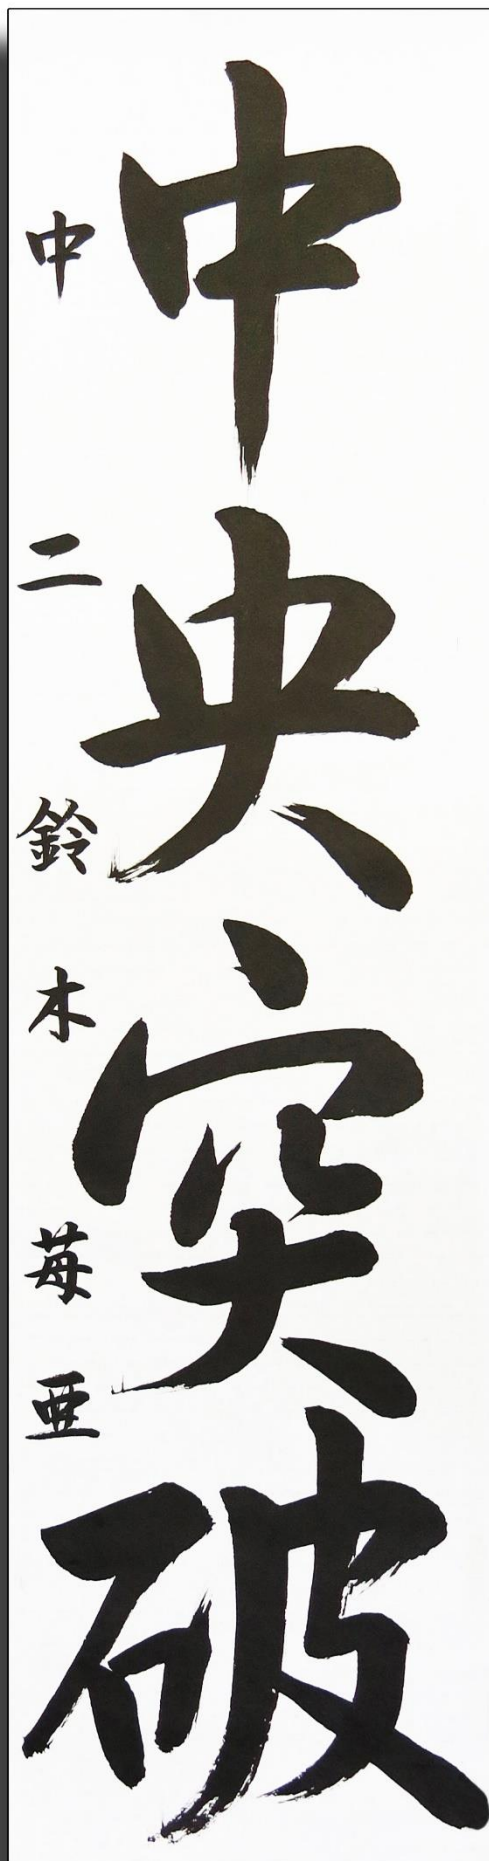 中央突破
中二 鈴木苺亜